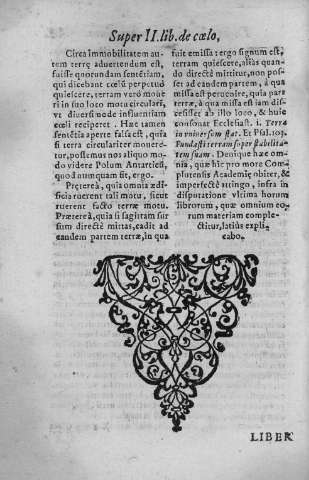 Super II. lib. de cœlo,
Circa immobilitatem au-
tem terrę aduertendum est,
fuisse quorundam sentētiam,
qui dicebant cœlū perpetuò
quiescere, terram verò moue
ri in suo loco motu circulari,
vt diuersimodè influentiam
cœli reciperet. Hæc tamen
sentētia aperte falsa est, quia
si terra circulariter mouere-
tur, possemus nos aliquo mo-
do videre Polum Antarticū,
quod nunquam fit, ergo.
Prętereà, quia omnia ædi-
ficia ruerent tali motu, sicut
ruerent facto terræ motu.
Prætereà, quia si sagittam sur
sum directè mittas, cadit ad
eandem partem terræ, in qua
fuit emissa: ergo signum est,
terram quiescere, alias quan-
do directè mittitur, non pos-
set ad eandem partem, à qua
emissa est peruenire, quia pars
terræ, à qua missa est iam dis-
cessisset ab illo loco, & huic
consonat Ecclesiast. 1. Terra
in vniuersum stat. Et Psal. 103.
Fundasti terram super stabilita-
tem suam. Denique hæc om-
nia, quæ hîc pro more Com-
plutensis Academię obiter, &
imperfectè attingo, infra in
disputatione vltima horum
librorum, quæ omnium eo-
rum materiam comple-
ctitur, latiùs expli
cabo.
LIBER